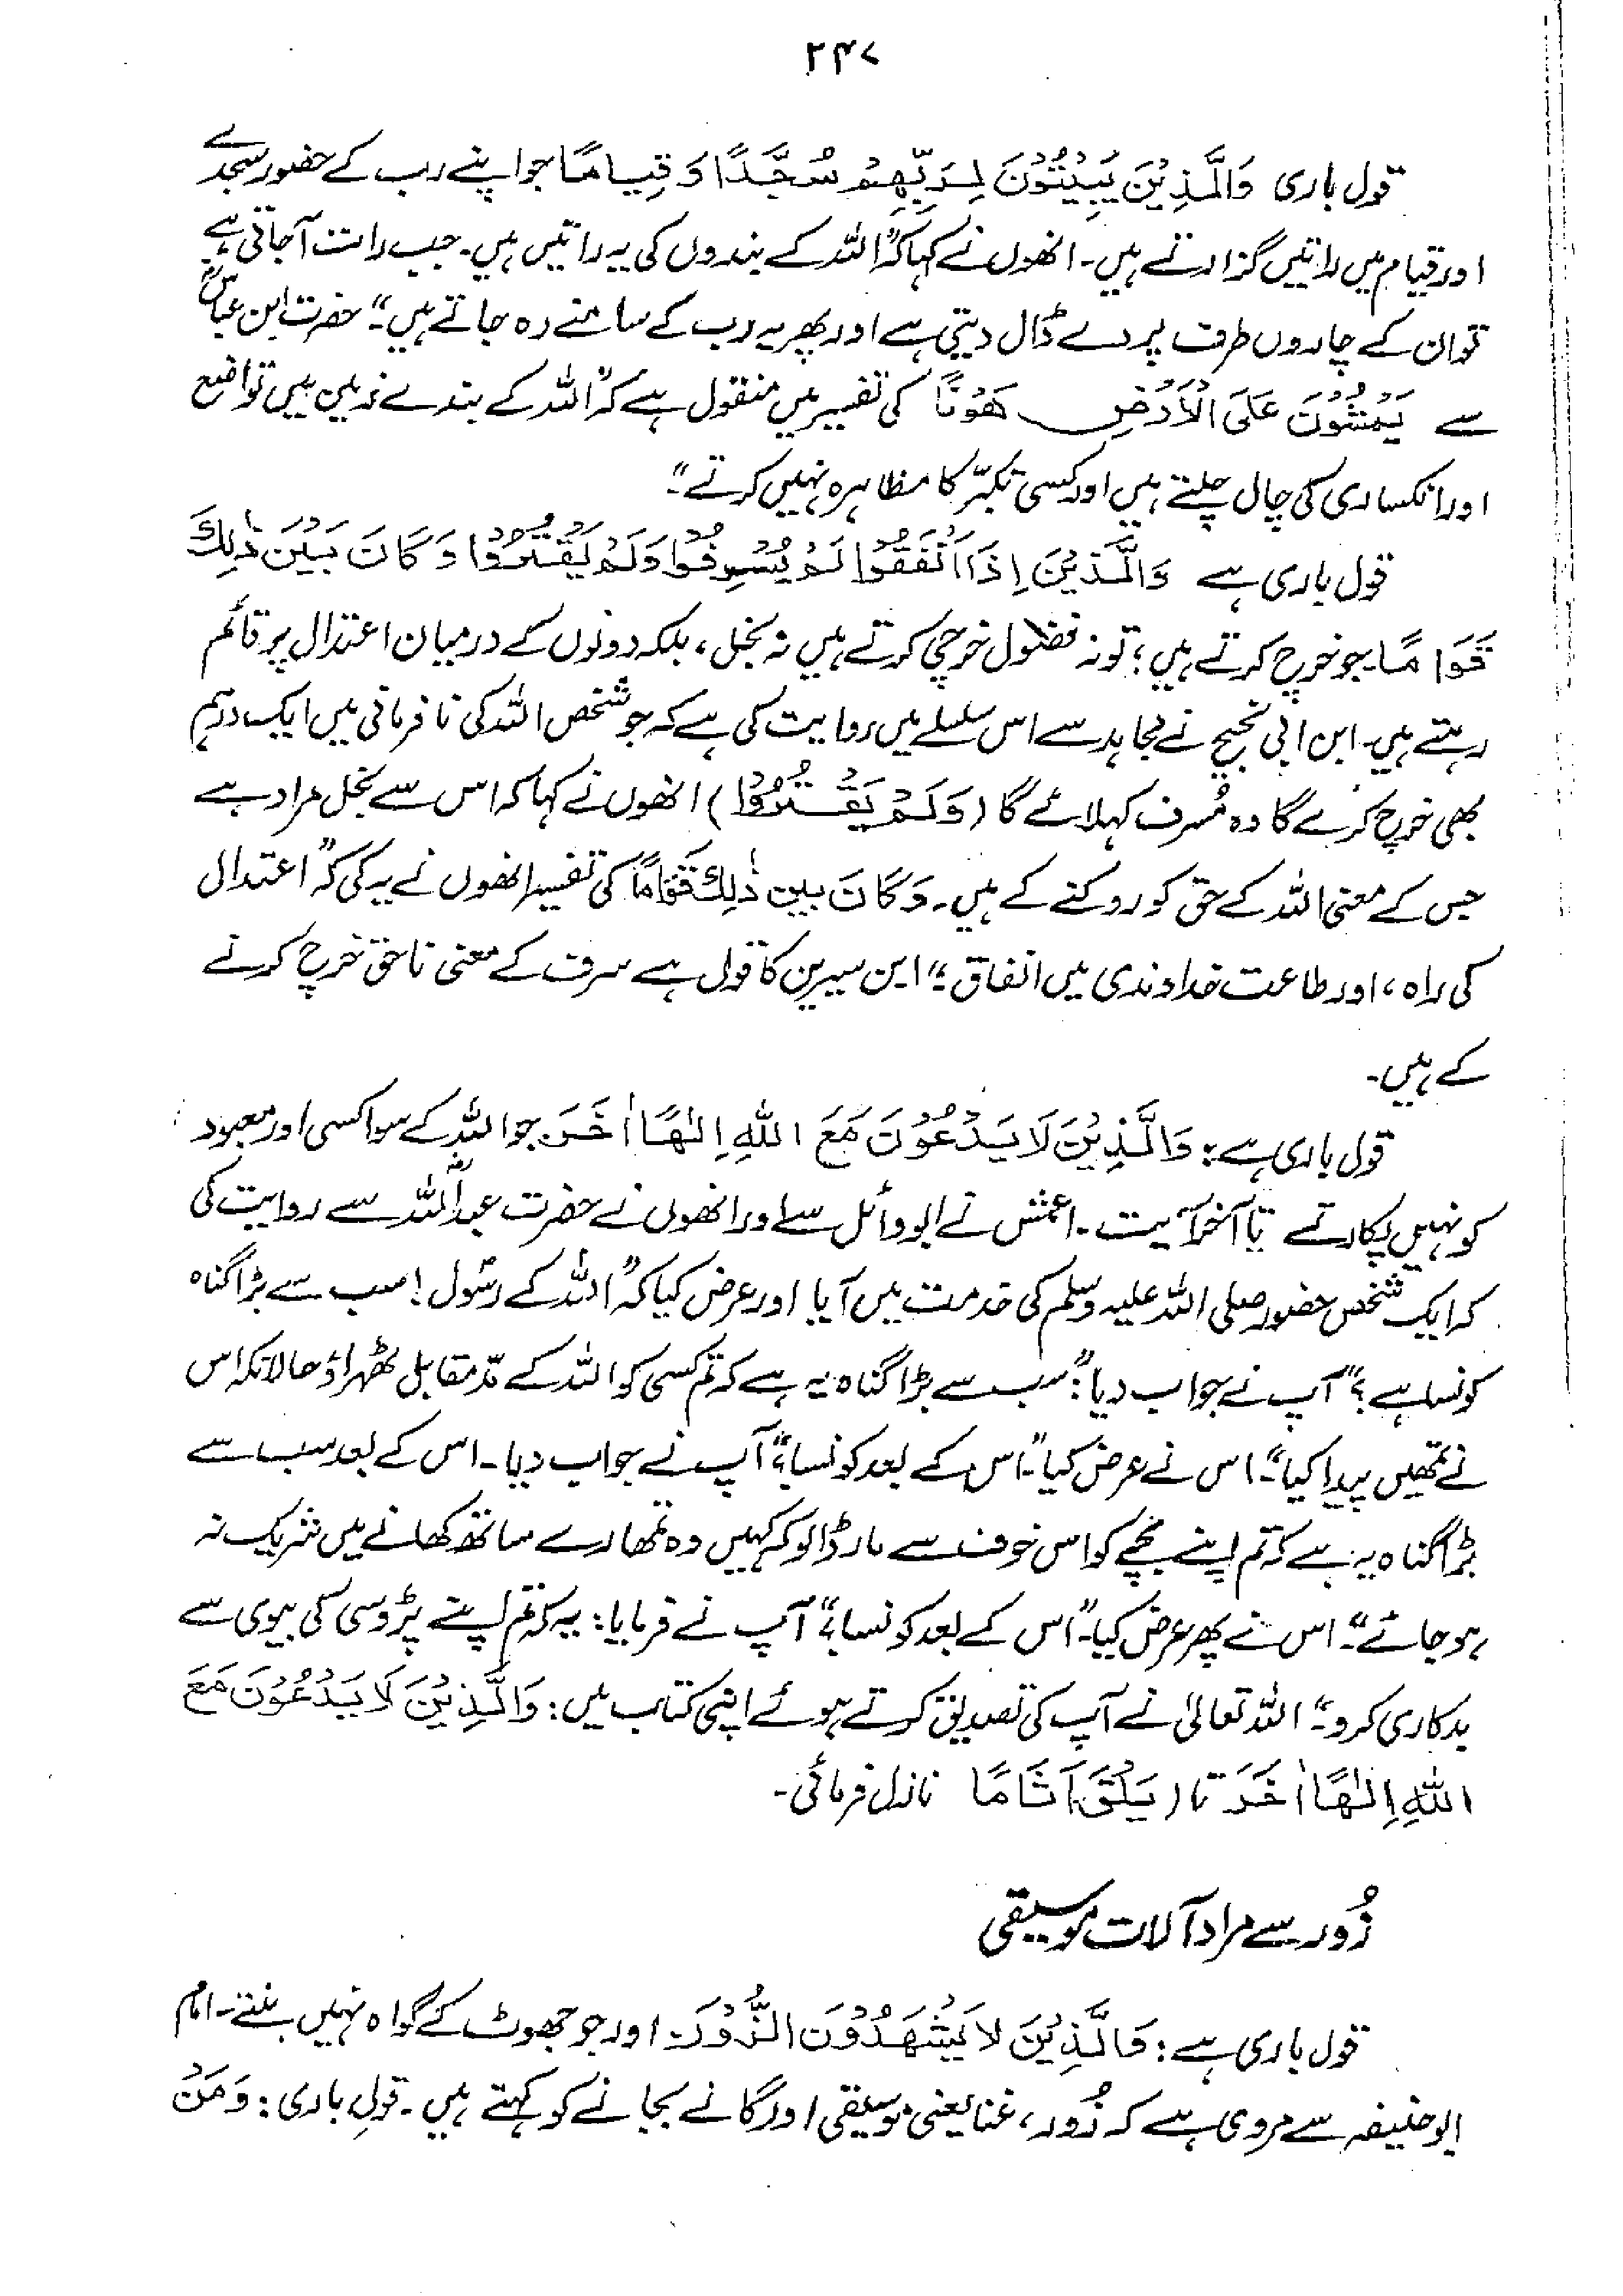 ۲۴۷
قول باری وَالَّذِیْنَ یَبِیْتُوْنَ لِرَبِّهِمْ سُجَّدًا وَقِیَامًا جو اپنے رب کے حضور سجدے
اور قیام میں راتیں گزارتے ہیں۔ انھوں نے کہا کہ "اللہ کے بندوں کی یہ راتیں ہیں۔ جب رات آجاتی ہے
تو ان کے چاروں طرف پردے ڈال دیتی ہے اور پھر یہ رب کے سامنے رہ جاتے ہیں۔" حضرت ابن عباسؓ
سے یَمْشُوْنَ عَلَی الْاَرْضِ هَوْنًا کی تفسیر میں منقول ہے کہ "اللہ کے بندے زمین میں تواضع
اور انکساری کی چال چلتے ہیں اور کسی تکبّر کا مظاہرہ نہیں کرتے"۔
قول باری ہے وَالَّذِیْنَ اِذَا اَنْفَقُوْا لَمْ یُسْرِفُوْا وَلَمْ یَقْتُرُوْا وَکَانَ بَیْنَ ذٰلِكَ
قَوَامًا۔ جو خرچ کرتے ہیں؛ تو نہ فضول خرچی کرتے ہیں نہ بخل، بلکہ دونوں کے درمیان اعتدال پر قائم
رہتے ہیں۔ ابن ابی نجیح نے مجاہد سے اس سلسلے میں روایت کی ہے کہ جو شخص اللہ کی نافرمانی میں ایک درہم
بھی خرچ کرے گا وہ مُسرف کہلائے گا (وَلَمْ یَقْتُرُوْا) انھوں نے کہا کہ اس سے بخل مراد ہے
جس کے معنی اللہ کے حق کو روکنے کے ہیں۔ وَکَانَ بین ذٰلِكَ قَوَامًا کی تفسیر انھوں نے یہ کی کہ "اعتدال
کی راہ، اور طاعت خداوندی میں انفاق۔" ابن سیرین کا قول ہے سرف کے معنی ناحق خرچ کرنے
کے ہیں۔
قول باری ہے: وَالَّذِیْنَ لَا یَدْعُوْنَ مَعَ اللهِ اِلٰهًا اٰخَرَ۔ جو اللہ کے سوا کسی اور معبود
کو نہیں پکارتے تا آخر آیت۔ اعمش نے ابو وائل سے اور انھوں نے حضرت عبداللہؓ سے روایت کی
کہ ایک شخص حضور صلی اللہ علیہ وسلم کی خدمت میں آیا اور عرض کیا کہ "اللہ کے رسُول! سب سے بڑا گناہ
کونسا ہے؟" آپ نے جواب دیا: "سب سے بڑا گناہ یہ ہے کہ تم کسی کو اللہ کے مدّمقابل ٹھہراؤ حالانکہ اس
نے تمھیں پیدا کیا"۔ اس نے عرض کیا۔ "اس کے بعد کونسا؟" آپ نے جواب دیا۔ اس کے بعد سب سے
بڑا گناہ یہ ہے کہ تم اپنے بچے کو اس خوف سے مار ڈالو کہ کہیں وہ تمھارے ساتھ کھانے میں شریک نہ
ہوجائے"۔ اس نے پھر عرض کیا۔ "اس کے بعد کونسا؟" آپ نے فرمایا: یہ کہ تم اپنے پڑوسی کی بیوی سے
بدکاری کرو۔" اللہ تعالیٰ نے آپ کی تصدیق کرتے ہوئے اپنی کتاب میں: وَالَّذِیْنَ لَا یَدْعُوْنَ مَعَ
اللهِ اِلٰهًا اٰخَرَ تا ( یَلْقَ اَثَامًا نازل فرمائی۔
زُور سے مراد آلات موسیقی
قول باری ہے: وَالَّذِیْنَ لَا یَشْهَدُوْنَ الزُّوْرَ۔ اور جو جھوٹ کے گواہ نہیں بنتے۔ امام
ابوحنیفہ سے مروی ہے کہ زُور، غنا یعنی موسیقی اور گانے بجانے کو کہتے ہیں۔ قولِ باری: وَمَنْ